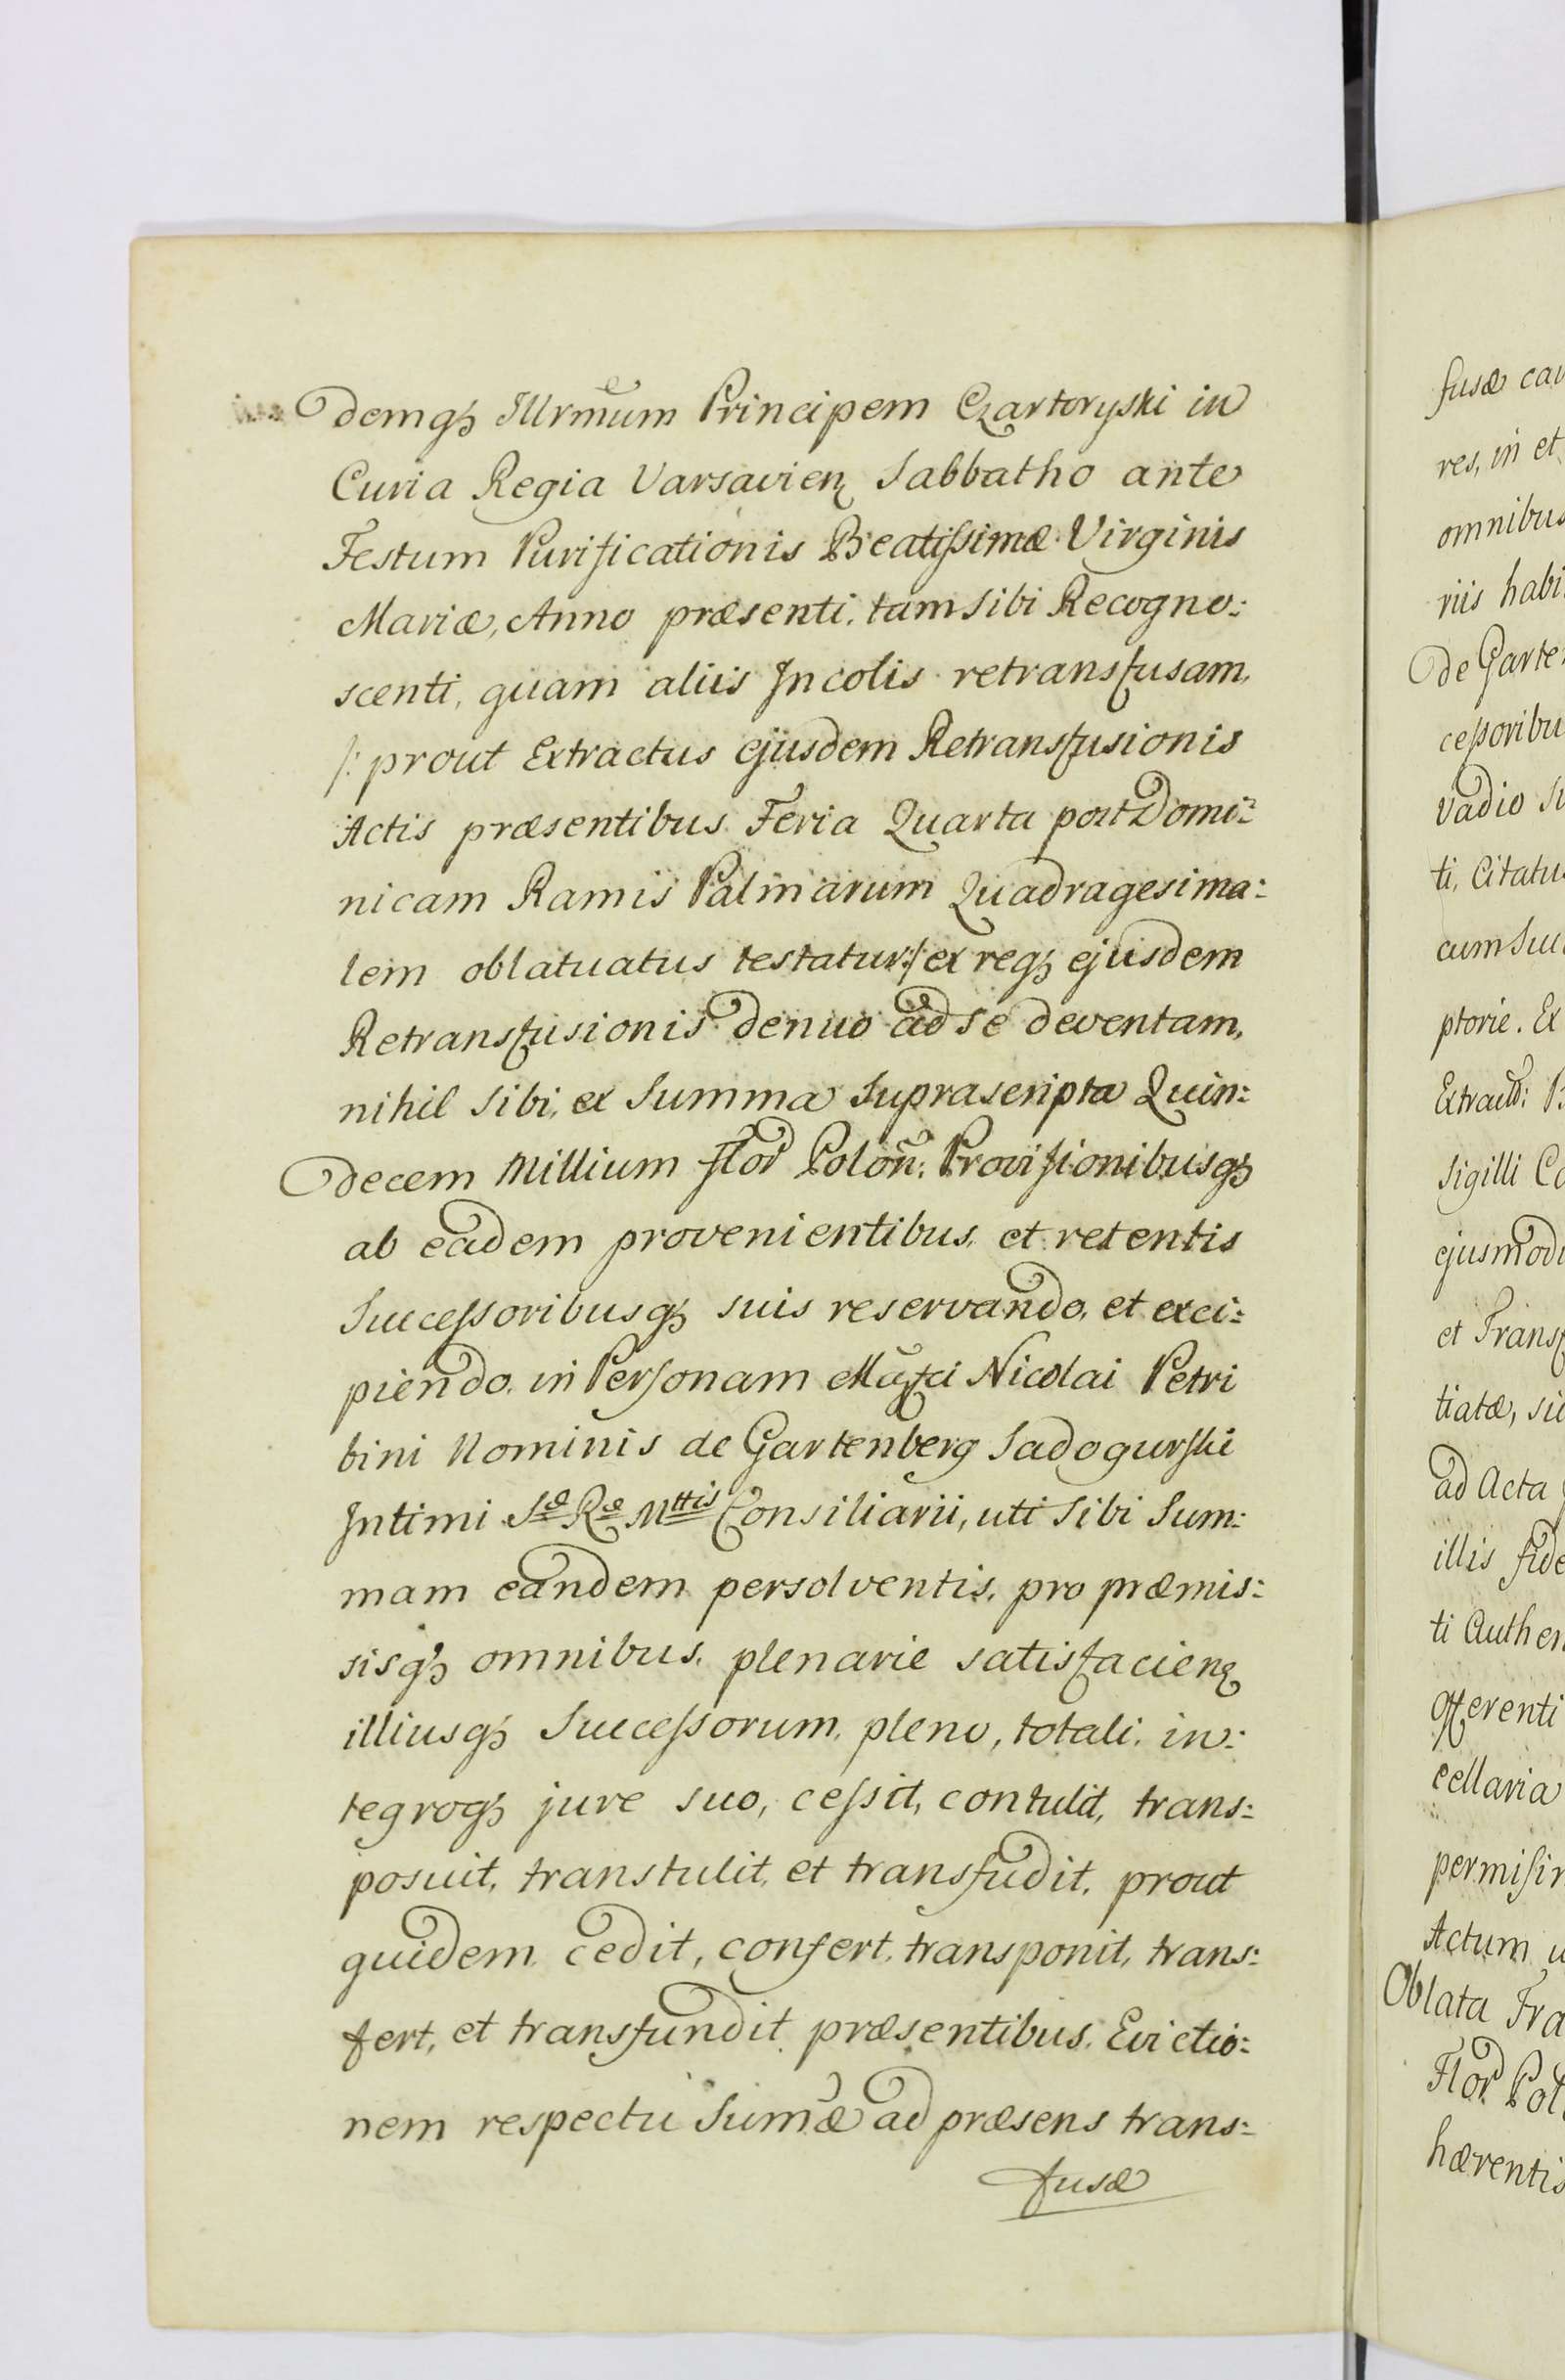 demq3 Illrmum Principem Czartoryski in
Curia Regia Varsavien Sabbatho ante
Festum Purificationis Beatissimæ Virginis
Mariæ, Anno præsenti, tam sibi Recogno:
scenti, quam aliis Incolis retransfusam,
/: prout Extractus ejusdem Retransfusionis
Actis præsentibus Feria Quarta post Domi:
nicam Ramis Palmarum Quadragesima:
lem oblatuatus testatur :/ ex req3 ejusdem
Retransfusionis denuo ad se deventam,
nihil sibi, ex Summa suprascripta Quin:
decem Millium flor Polon: Provisionibusq3
ab eadem provenientibus, et retentis
Successoribusq3 suis reservando, et exci:
piendo, in Personam Mgfci Nicolai Petri
bini Nominis de Gartenberg Sadogurski
Intimi Sæ Ræ Mttis Consiliarii, uti sibi Sum:
mam eandem persolventis, pro præmis:
sisq3 omnibus, plenarie satisfacien
illiusq3 Successorum, pleno, totali, in:
tegroq3 jure suo, cessit, contulit, trans:
posuit, transtulit, et transfudit, prout
quidem cedit, confert, transponit, trans:
fert, et transfundit præsentibus. Evictio:
nem respectu Sumæ ad præsens trans:
fusæ
fusæ
res, in et
omnibus
riis habi
de Garte
cessoribu
vadio
ti, Citatu
cum
ptorie. Ex
Extract:
Sigilli
ejusmodi
et Transf
tiatæ,
ad Acta
illis fide
ti Authen
offerenti
cellaria
permisi
Actum
Oblata Tra
Flor Pol
hærentis